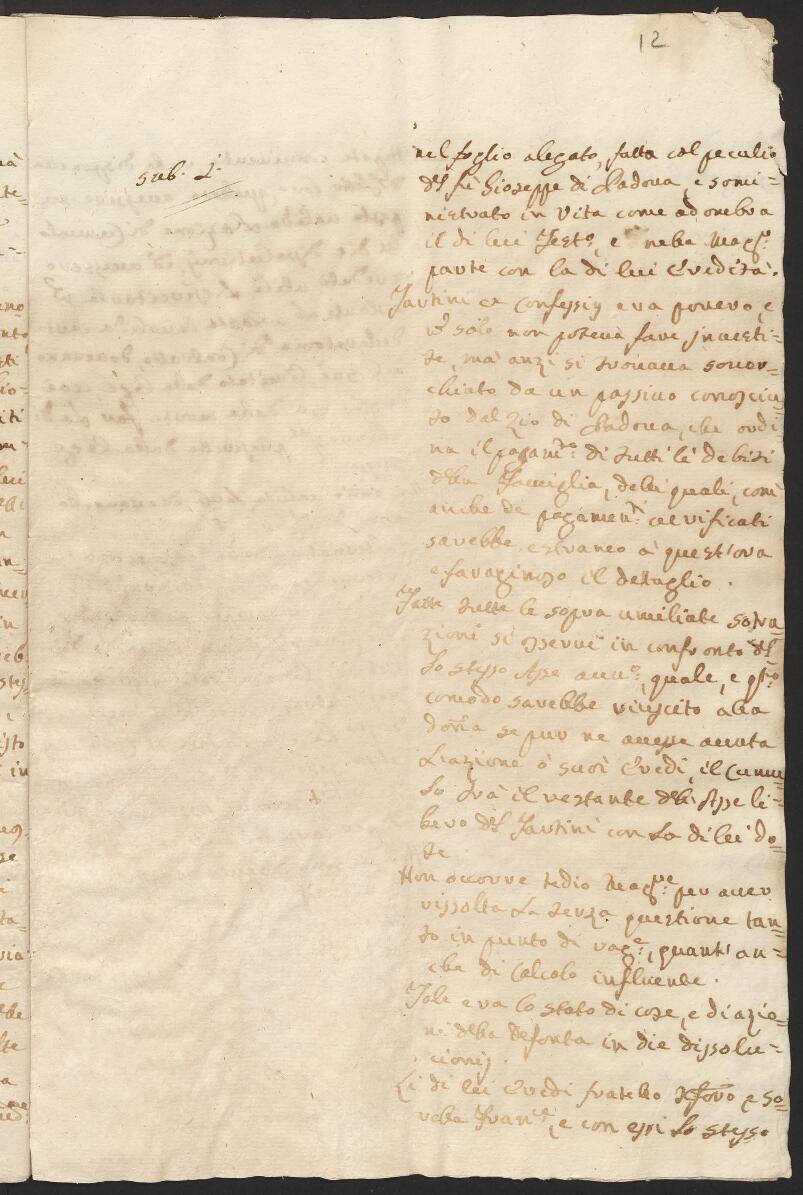 12
sub. L
nel foglio alegato, fatta col peculio
del fù Gioseppe di Padova, e somi=
nistrato in Vita come adombra
il di lui Testo:, e nella Magr:
parte con la di lui Eredità.
Tartini ex Confessis era povero, e
non solo non poteva fare investi=
te, mà anzi si trovava sover=
chiato da un passivo conosciu=
to dal Zio di Padova, che ordi
na il pagamto: di tutti li debiti
della Famiglia, delli quali, come
anche de pagamenti verificati
sarebbe estraneo à quest'ora
e faraginoso il detaglio.
Fatte tutte le sopra umiliate sotra=
zioni si osservi in confronto del
lo stesso Asse, quale, e qto:
comodo sarebbe riuscito alla
donna se pur ne avesse avuta
L'azione ò suoi Eredi, il Cumu=
lo trà il restante delli Asse li=
bero del Tartini con la di lei do=
te
Non occorre tedio Magre per aver
rissolta la terza questione tan=
to in punto di rage:, quanto an=
che di Calcolo influente.
Tale era lo stato di cose, e di azio=
ni della defonta in die dissolu=
cionis.
Li di lei Eredi fratello e so=
rella, e con essi lo stesso